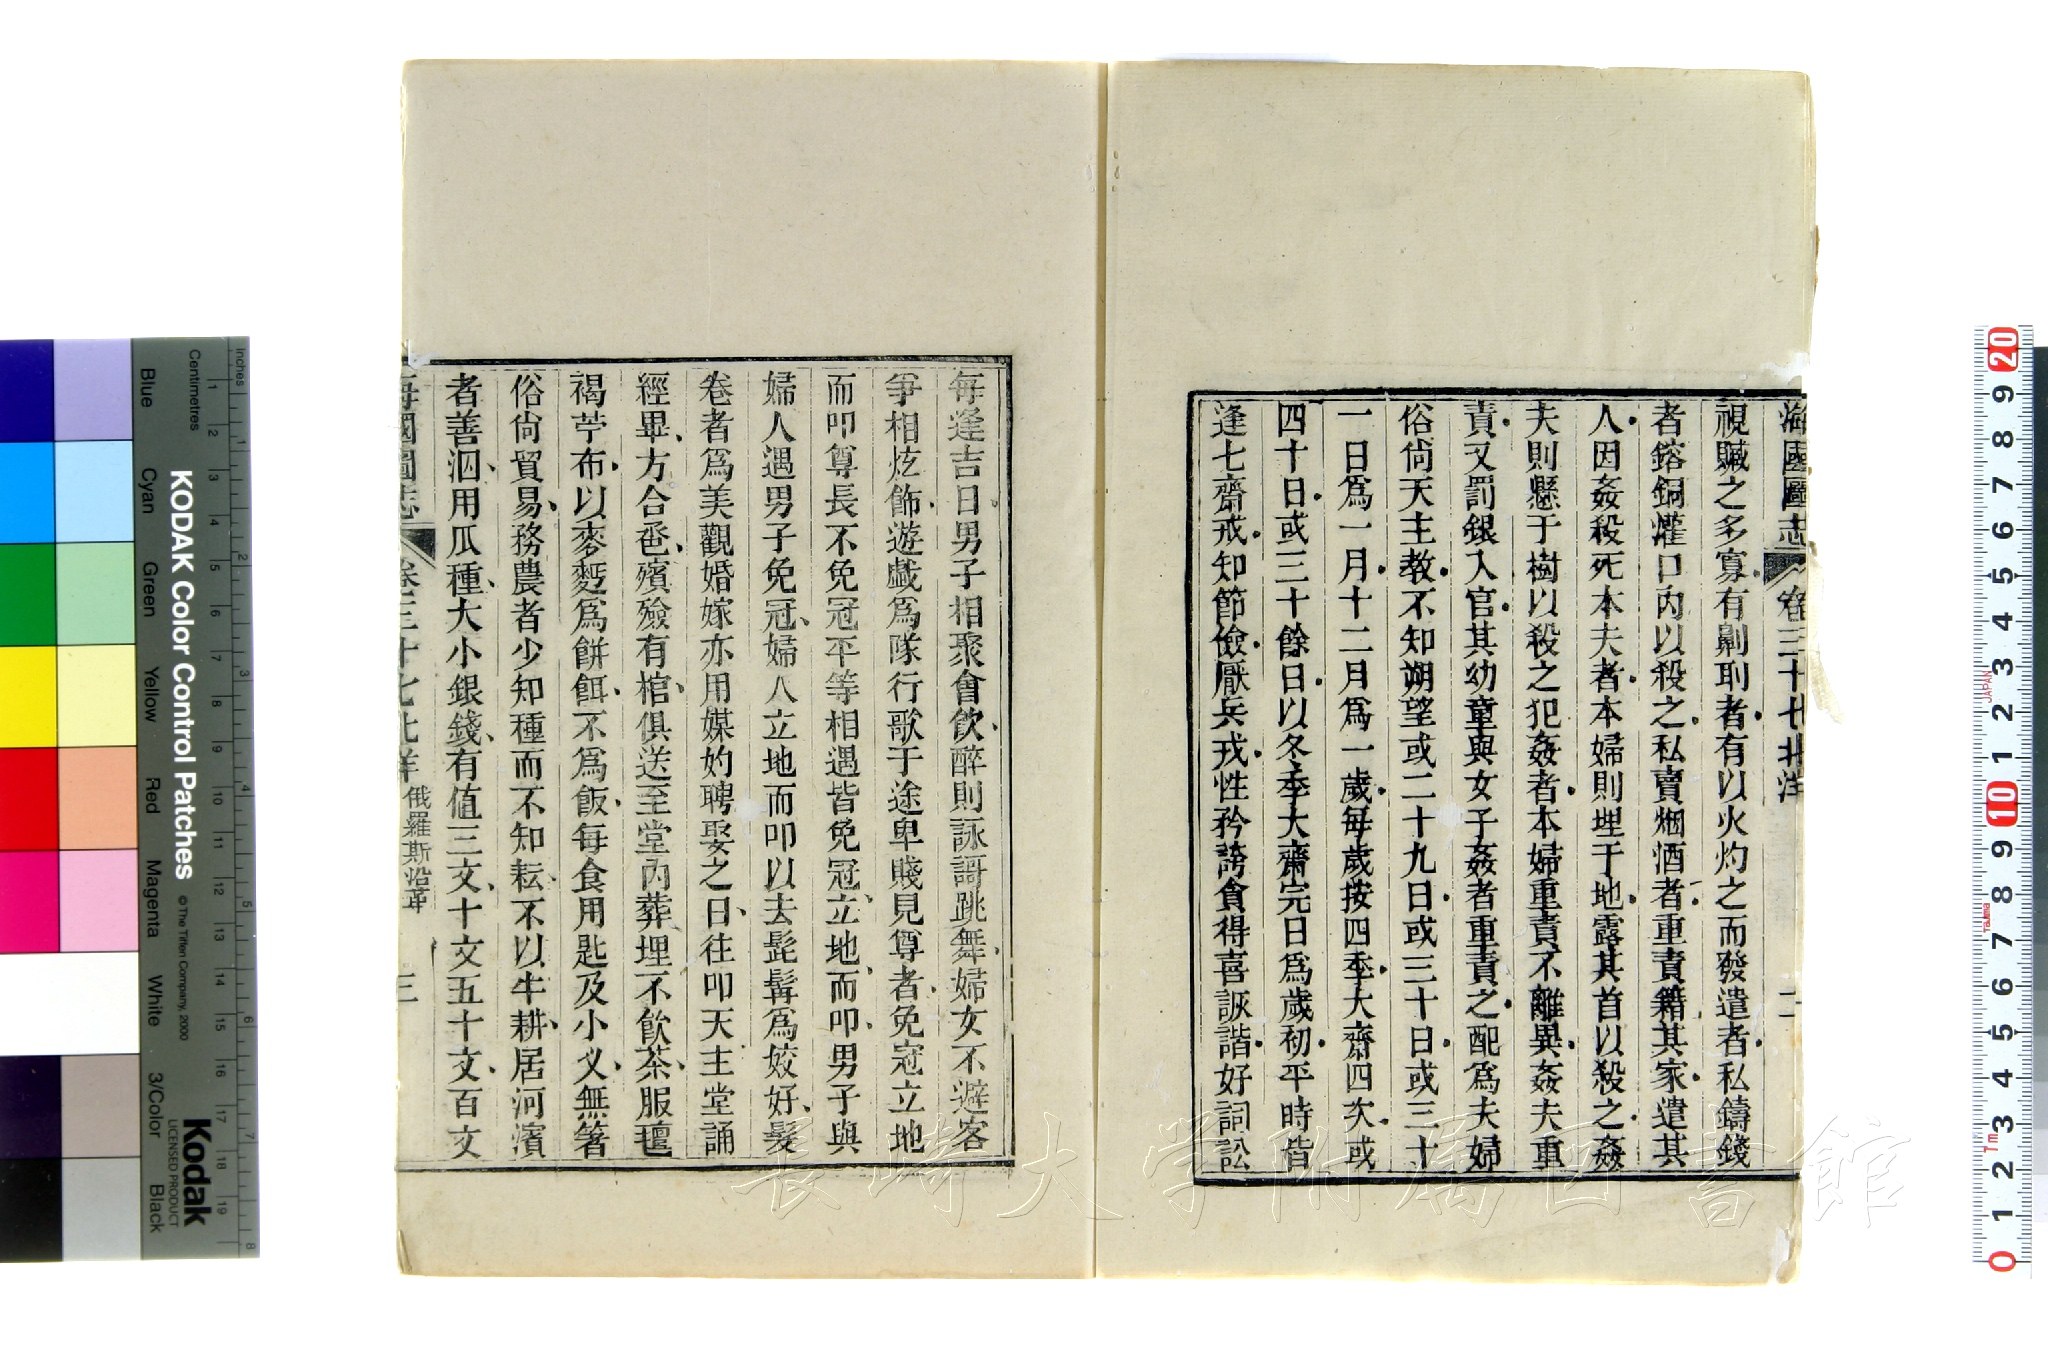 海國圖志 卷三十七北洋 二
視贓之多寡有劓刵者有以火灼之而發遣者私鑄錢
者鎔銅灌口內以殺之私賣烟酒者重責籍其家遣其
人因姦殺死本夫者本婦則埋于地露其首以殺之姦
夫則懸于樹以殺之犯姦者本婦重責不離異姦夫重
責又罰銀入官其幼童與女子姦者重責之配爲夫婦
俗尙天主教不知朔望或二十九日或三十日或三十
一日爲一月十二月爲一歲每歲按四季大齋四次或
四十日或三十餘日以冬季大齋完日爲歲初平時皆
逢七齋戒知節儉厭兵戎性矜誇貪得喜詼諧好詞訟
每逢吉日男子相聚會飲醉則詠謌跳舞婦女不避客
爭相炫飾遊戯爲隊行歌于途卑賤見尊者免冠立地
而叩尊長不免冠平等相遇皆免冠立地而叩男子與
婦人遇男子免冠婦人立地而叩以去髭髯爲姣好髮
卷者爲美觀婚嫁亦用媒妁聘娶之日往叩天主堂誦
經畢方合巹殯殮有棺俱送至堂內葬埋不飲茶服氊
褐苧布以麥麪爲餅餌不爲飯每食用匙及小义無箸
俗尙貿易務農者少知種而不知耘不以牛耕居河濱
者善泅用瓜種大小銀錢有值三文十文五十文百文
海國圖志 卷三十七北洋 俄羅斯沿革 三
長崎大学附属図書館
KODAK Color Control Patches
© The Tiffen Company, 2000
Kodak
LICENSED PRODUCT
Inches
Centimetres
Blue
Cyan
Green
Yellow
Red
Magenta
White
3/Color
Black
1 2 3 4 5 6 7 8 9 10 11 12 13 14 15 16 17 18 19
1 2 3 4 5 6 7 8
20 9 8 7 6 5 4 3 2 1 10 9 8 7 6 5 4 3 2 1 0
JAPAN